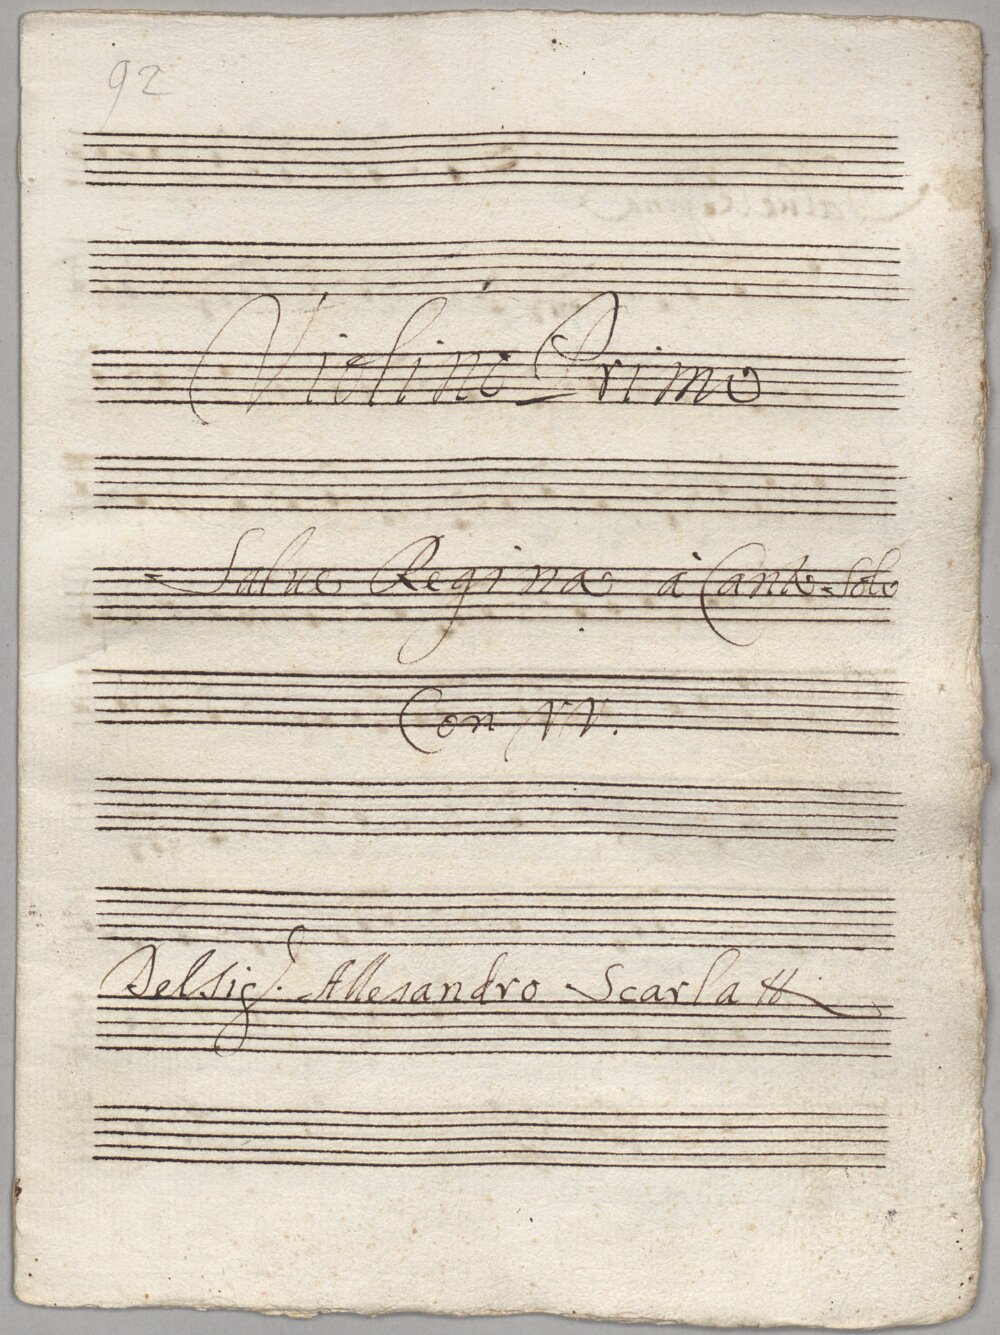 92
Violino Primo
Salue Regina à Canto Solo
Con VV.
Del Sig.r Allesandro Scarlatti